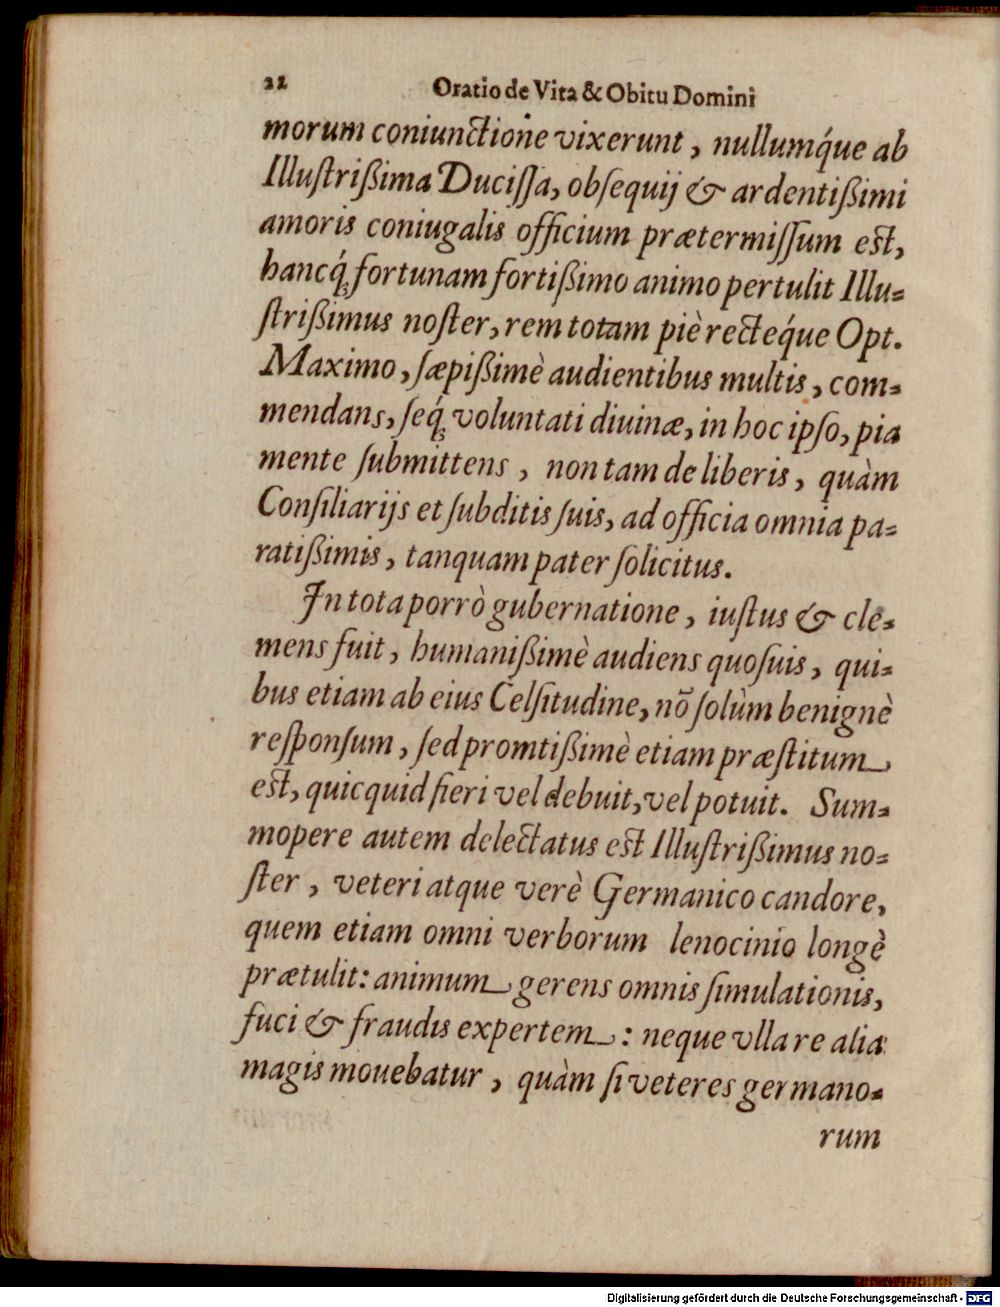 22 Oratio de Vita & Obitu Domini
morum coniunctione vixerunt, nullumq́ue ab
Illuſtrißima Duciſſa, obſequij & ardentißimi
amoris coniugalis officium prætermiſſum est,
hancq́ꝫ fortunam fortißimo animo pertulit Illu-
ſtrißimus noſter, rem totam piè recteq́ue Opt.
Maximo, ſæpißimè audientibus multis, com-
mendans, ſeq́ꝫ voluntati diuinæ, in hoc ipſo, pia
mente ſubmittens, non tam de liberis, quàm
Conſiliarijs et ſubditis ſuis, ad officia omnia pa-
ratißimis, tanquam pater ſolicitus.
In tota porrò gubernatione, iuſtus & cle-
mens fuit, humanißimè audiens quoſuis, qui-
bus etiam ab eius Celſitudine, nõ ſolùm benignè
reſponſum, ſed promtißimè etiam præſtitum
est, quicquid fieri vel debuit, vel potuit. Sum-
mopere autem delectatus est Illuſtrißimus no-
ſter, veteri atque verè Germanico candore,
quem etiam omni verborum lenocinio longè
prætulit: animum gerens omnis ſimulationis,
fuci & fraudis expertem: neque vlla re alia
magis mouebatur, quàm ſi veteres germano-
rum
Digitalisierung gefördert durch die Deutsche Forschungsgemeinschaft - DFG